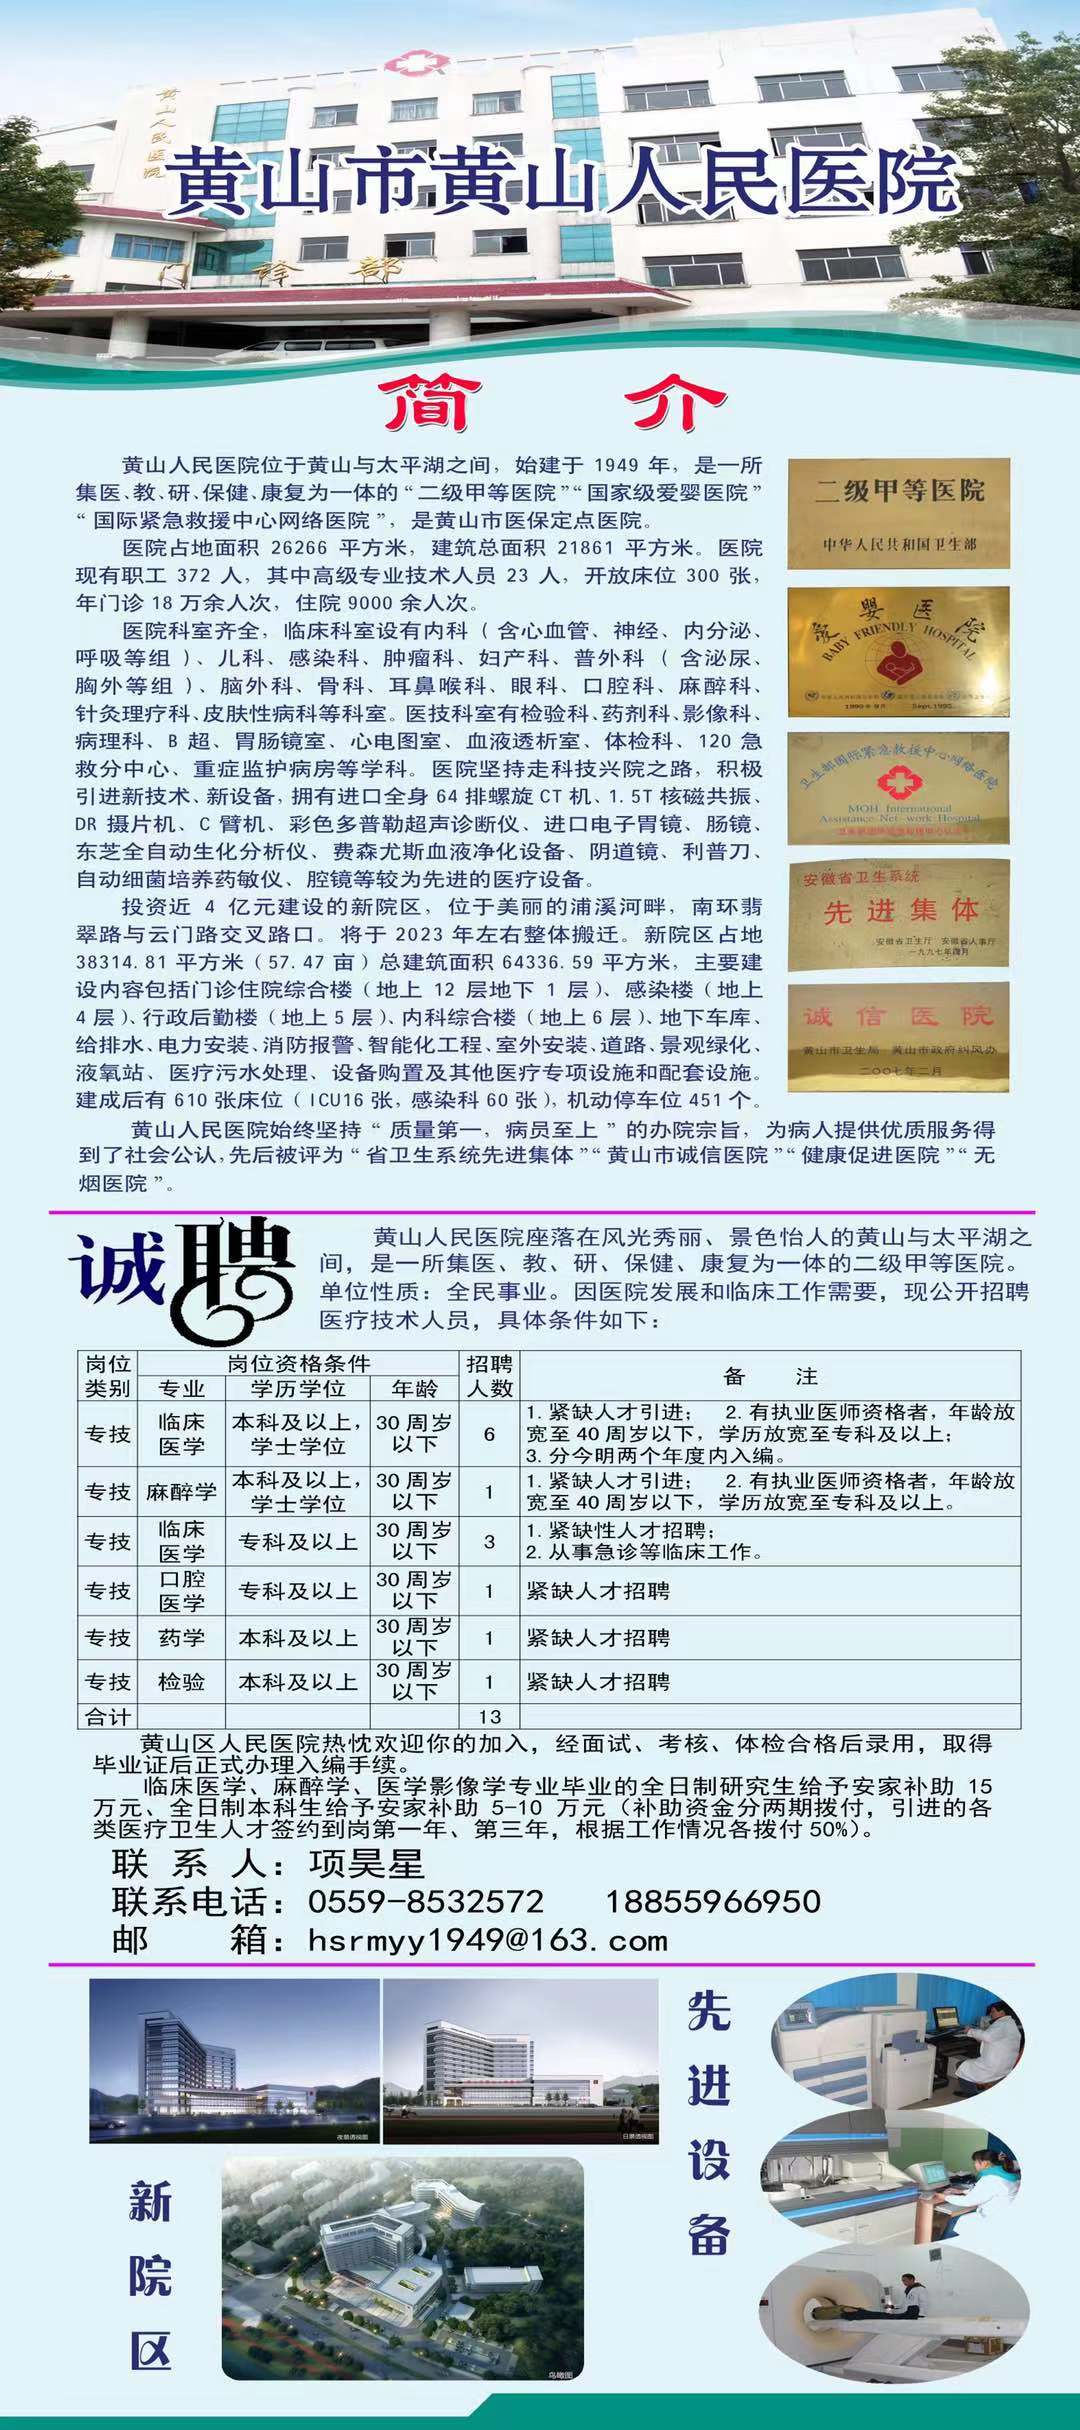 黄山人民医院
黄山市黄山人民医院
门诊部
简 介
黄山人民医院位于黄山与太平湖之间，始建于 1949 年，是一所
集医、教、研、保健、康复为一体的“二级甲等医院”“国家级爱婴医院”
“国际紧急救援中心网络医院”，是黄山市医保定点医院。
医院占地面积 26266 平方米，建筑总面积 21861 平方米。医院
现有职工 372 人，其中高级专业技术人员 23 人，开放床位 300 张，
年门诊 18 万余人次，住院 9000 余人次。
医院科室齐全，临床科室设有内科（含心血管、神经、内分泌、
呼吸等组）、儿科、感染科、肿瘤科、妇产科、普外科（含泌尿、
胸外等组）、脑外科、骨科、耳鼻喉科、眼科、口腔科、麻醉科、
针灸理疗科、皮肤性病科等科室。医技科室有检验科、药剂科、影像科、
病理科、B 超、胃肠镜室、心电图室、血液透析室、体检科、120 急
救分中心、重症监护病房等学科。医院坚持走科技兴院之路，积极
引进新技术、新设备，拥有进口全身 64 排螺旋 CT 机、1.5T 核磁共振、
DR 摄片机、C 臂机、彩色多普勒超声诊断仪、进口电子胃镜、肠镜、
东芝全自动生化分析仪、费森尤斯血液净化设备、阴道镜、利普刀、
自动细菌培养药敏仪、腔镜等较为先进的医疗设备。
投资近 4 亿元建设的新院区，位于美丽的浦溪河畔，南环翡
翠路与云门路交叉路口。将于 2023 年左右整体搬迁。新院区占地
38314.81 平方米（57.47 亩）总建筑面积 64336.59 平方米，主要建
设内容包括门诊住院综合楼（地上 12 层地下 1 层）、感染楼（地上
4 层）、行政后勤楼（地上 5 层）、内科综合楼（地上 6 层）、地下车库、
给排水、电力安装、消防报警、智能化工程、室外安装、道路、景观绿化、
液氧站、医疗污水处理、设备购置及其他医疗专项设施和配套设施。
建成后有 610 张床位（ICU16 张，感染科 60 张），机动停车位 451 个。
黄山人民医院始终坚持“质量第一，病员至上”的办院宗旨，为病人提供优质服务得
到了社会公认，先后被评为“省卫生系统先进集体”“黄山市诚信医院”“健康促进医院”“无
烟医院”。
二级甲等医院
中华人民共和国卫生部
爱婴医院
BABY FRIENDLY HOSPITAL
Sept.1995
卫生部国际紧急救援中心网络医院
MOH International
Assistance Net-work Hospital
安徽省卫生系统
先进集体
安徽省卫生厅 安徽省人事厅
一九九七年四月
诚信医院
黄山市卫生局 黄山市政府纠风办
二〇〇七年二月
诚聘
黄山人民医院座落在风光秀丽、景色怡人的黄山与太平湖之
间，是一所集医、教、研、保健、康复为一体的二级甲等医院。
单位性质：全民事业。因医院发展和临床工作需要，现公开招聘
医疗技术人员，具体条件如下：
岗位类别 岗位资格条件 招聘人数 备 注
专业 学历学位 年龄
专技 临床医学 本科及以上，学士学位 30 周岁以下 6 1. 紧缺人才引进； 2. 有执业医师资格者，年龄放
宽至 40 周岁以下，学历放宽至专科及以上；
3. 分今明两个年度内入编。
专技 麻醉学 本科及以上，学士学位 30 周岁以下 1 1. 紧缺人才引进； 2. 有执业医师资格者，年龄放
宽至 40 周岁以下，学历放宽至专科及以上。
专技 临床医学 专科及以上 30 周岁以下 3 1. 紧缺性人才招聘；
2. 从事急诊等临床工作。
专技 口腔医学 专科及以上 30 周岁以下 1 紧缺人才招聘
专技 药学 本科及以上 30 周岁以下 1 紧缺人才招聘
专技 检验 本科及以上 30 周岁以下 1 紧缺人才招聘
合计 13
黄山区人民医院热忱欢迎你的加入，经面试、考核、体检合格后录用，取得
毕业证后正式办理入编手续。
临床医学、麻醉学、医学影像学专业毕业的全日制研究生给予安家补助 15
万元、全日制本科生给予安家补助 5-10 万元（补助资金分两期拨付，引进的各
类医疗卫生人才签约到岗第一年、第三年，根据工作情况各拨付 50%）。
联 系 人：项昊星
联系电话：0559-8532572 18855966950
邮 箱：hsrmyy1949@163.com
夜景透视图
日景透视图
先进设备
新院区
鸟瞰图